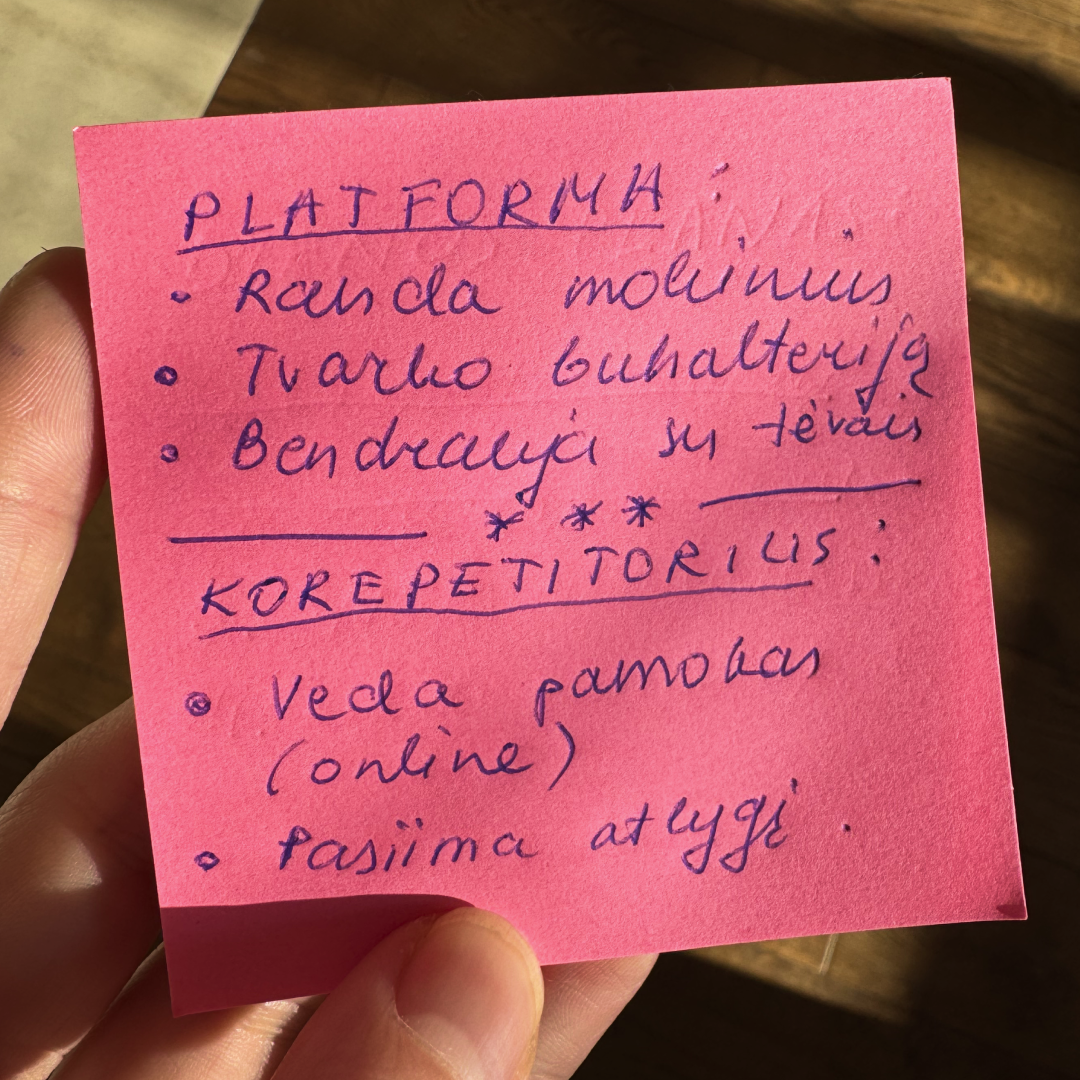 PLATFORMA:
• Randa mokinius
• Tvarko buhalteriją
• Bendrauja su tėvais
* * *
KOREPETITORIUS:
• Veda pamokas
(online)
• Pasiima atlygį.